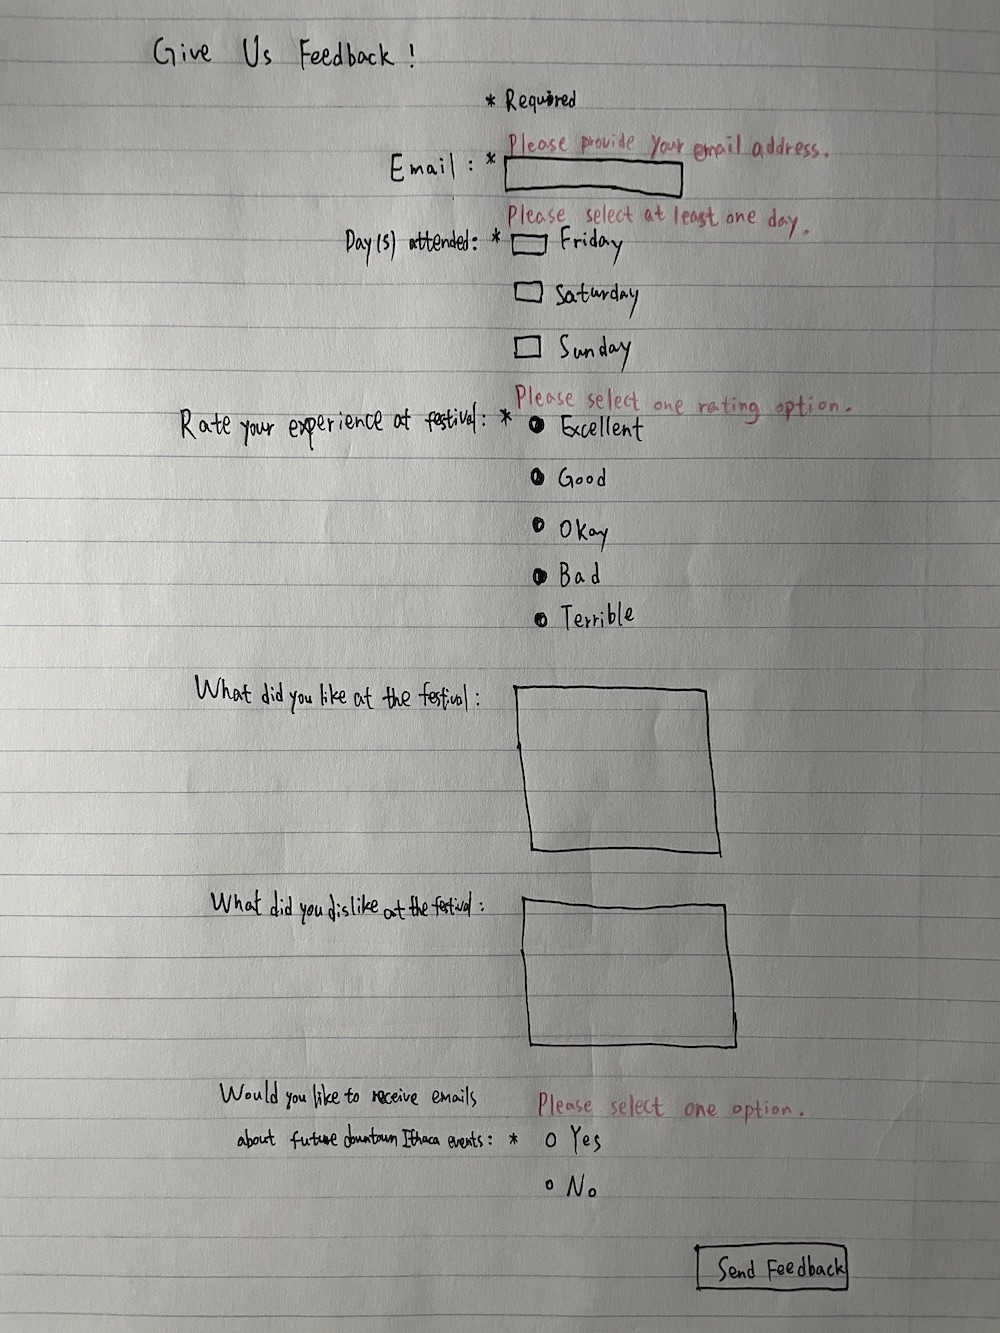 Give Us Feedback!
* Required
Please provide your email address.
Email: *
Please select at least one day.
Day(s) attended: * Friday
Saturday
Sunday
Please select one rating option.
Rate your experience at festival: * Excellent
Good
Okay
Bad
Terrible
What did you like at the festival:
What did you dislike at the festival:
Would you like to receive emails
Please select one option.
about future downtown Ithaca events: * Yes
No
Send Feedback